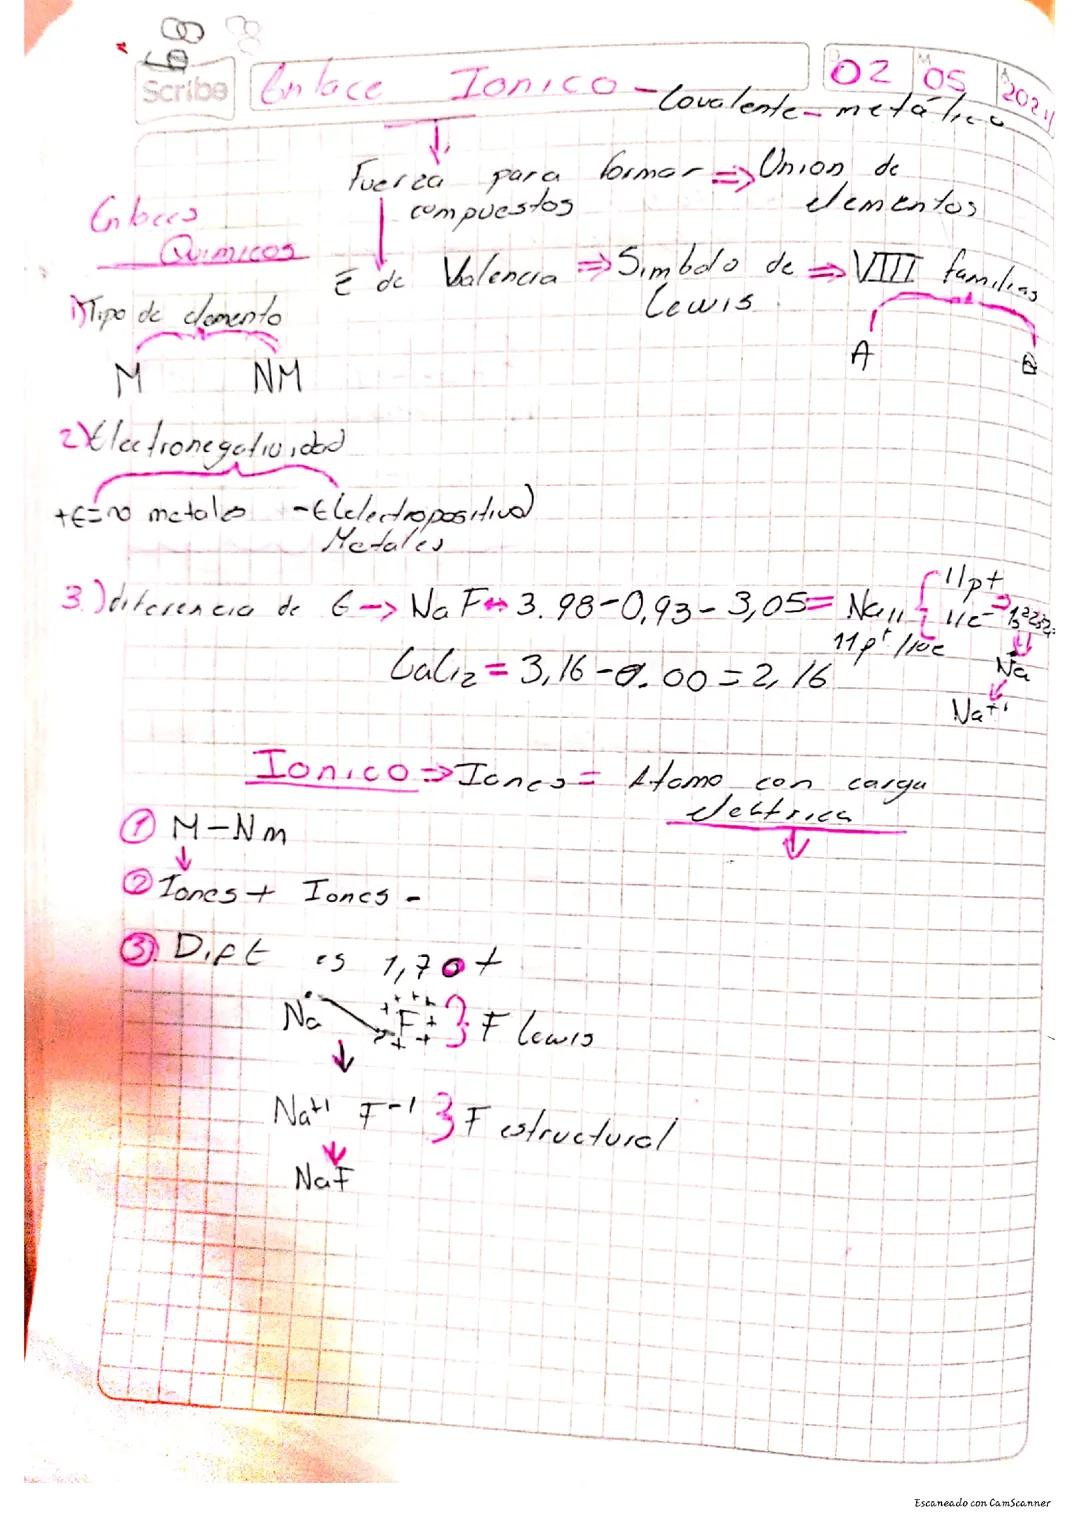 68
Scribe
Enlace Ionico - Covalente - metálico
02 05 2024
Fuerza para formar ⇒ Union de
compuestos elementos
Enlaces
Quimicos
E de Valencia ⇒ Simbolo de ⇒ VIII familias
Lewis
1) Tipo de elemento
A B
M NM
2) Electronegatividad
+E= no metales -E (electropositivo)
Metales
3.) diferencia de E → NaF ↔ 3.98-0,93-3,05= Na11 { 11p+
11e- ⇒ 1s²2s²
11p+/10e
CaCl2 = 3,16-1.00=2,16
Na
Na+1
Ionico ⇒ Iones = Atomo con carga
electrica
① M-Nm
② Iones + Iones -
③ Dif E es 1,7 o +
Na F } F lewis
Na+1 F-1 } F estructural
NaF
Escaneado con CamScanner